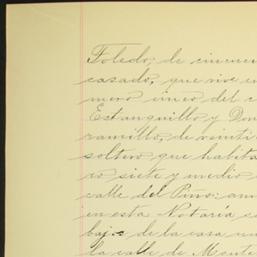 Toledo; de cincuen
casado, que vive en
mero cinco del c
Estanquillo y Don
ramillo, de veinti
soltero que habita
io siete y medio
calle del Pino: am
en esta Notaría co
bajo de la casa nu
la calle de Monte